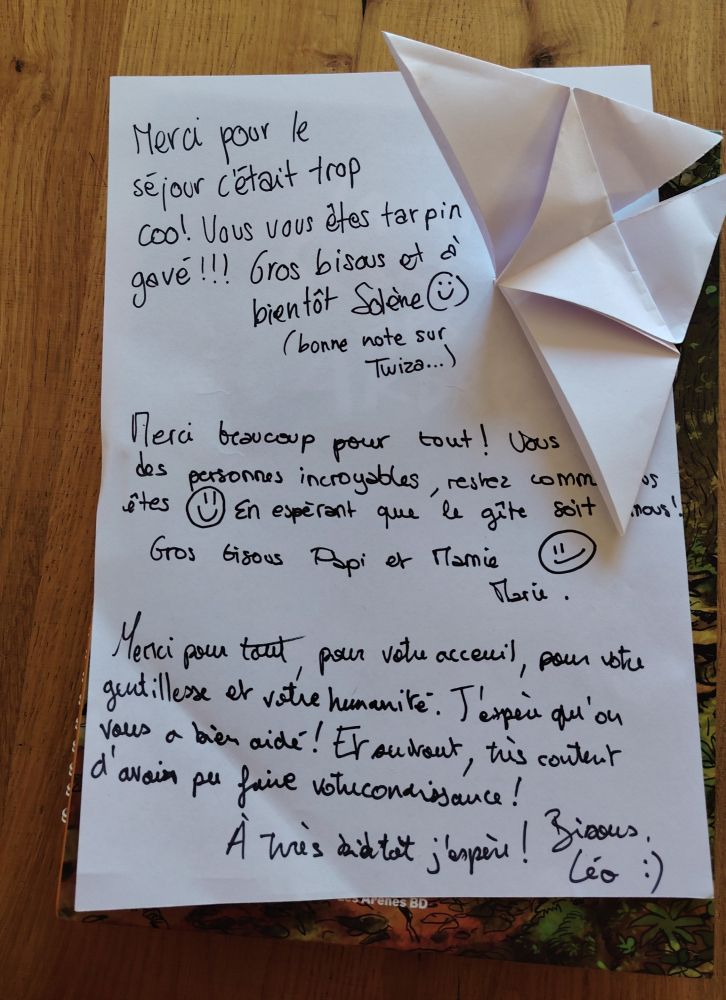 Merci pour le
séjour c'était trop
coo! Vous vous êtes tarpin
gavé!!! Gros bisous et à
bientôt Solène
(bonne note sur
Twiza...)
Merci beaucoup pour tout! Vous
des personnes incroyables, restez comm
êtes En espérant que le gîte soit nous!
Gros bisous Papi et Mamie
Marie.
Merci pour tout, pour votre acceuil, pour votre
gentillesse et votre humanité. J'espère qu'on
vous a bien aidé! Et surtout, très content
d'avoir pu faire votre connaissance!
À très bientôt j'espère! Bisous.
Léo :)
Les Arènes BD